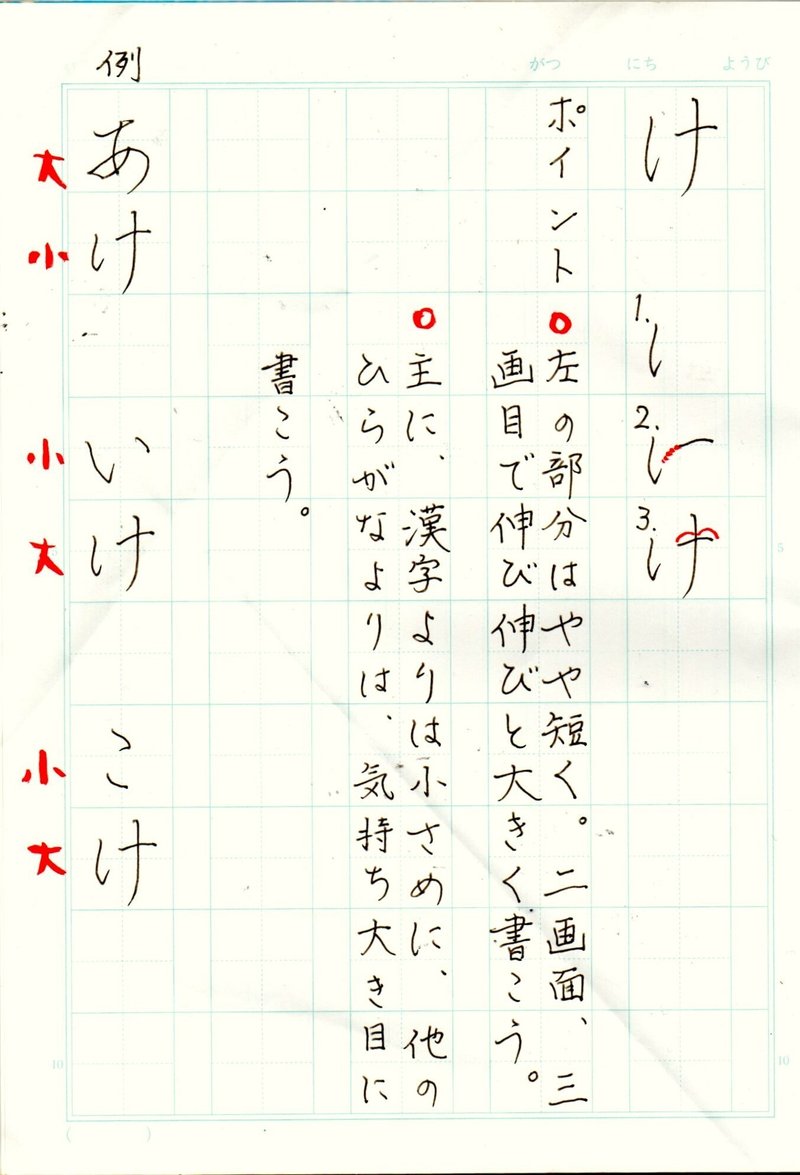 がつ にち ようび
け
1. 2. 3. け
ポイント
○左の部分はやや短く。二画面、三
画目で伸び伸びと大きく書こう。
○主に、漢字よりは小さめに、他の
ひらがなよりは、気持ち大き目に
書こう。
例
あけ いけ こけ
大 小 小 大 小 大
5
10
5
10